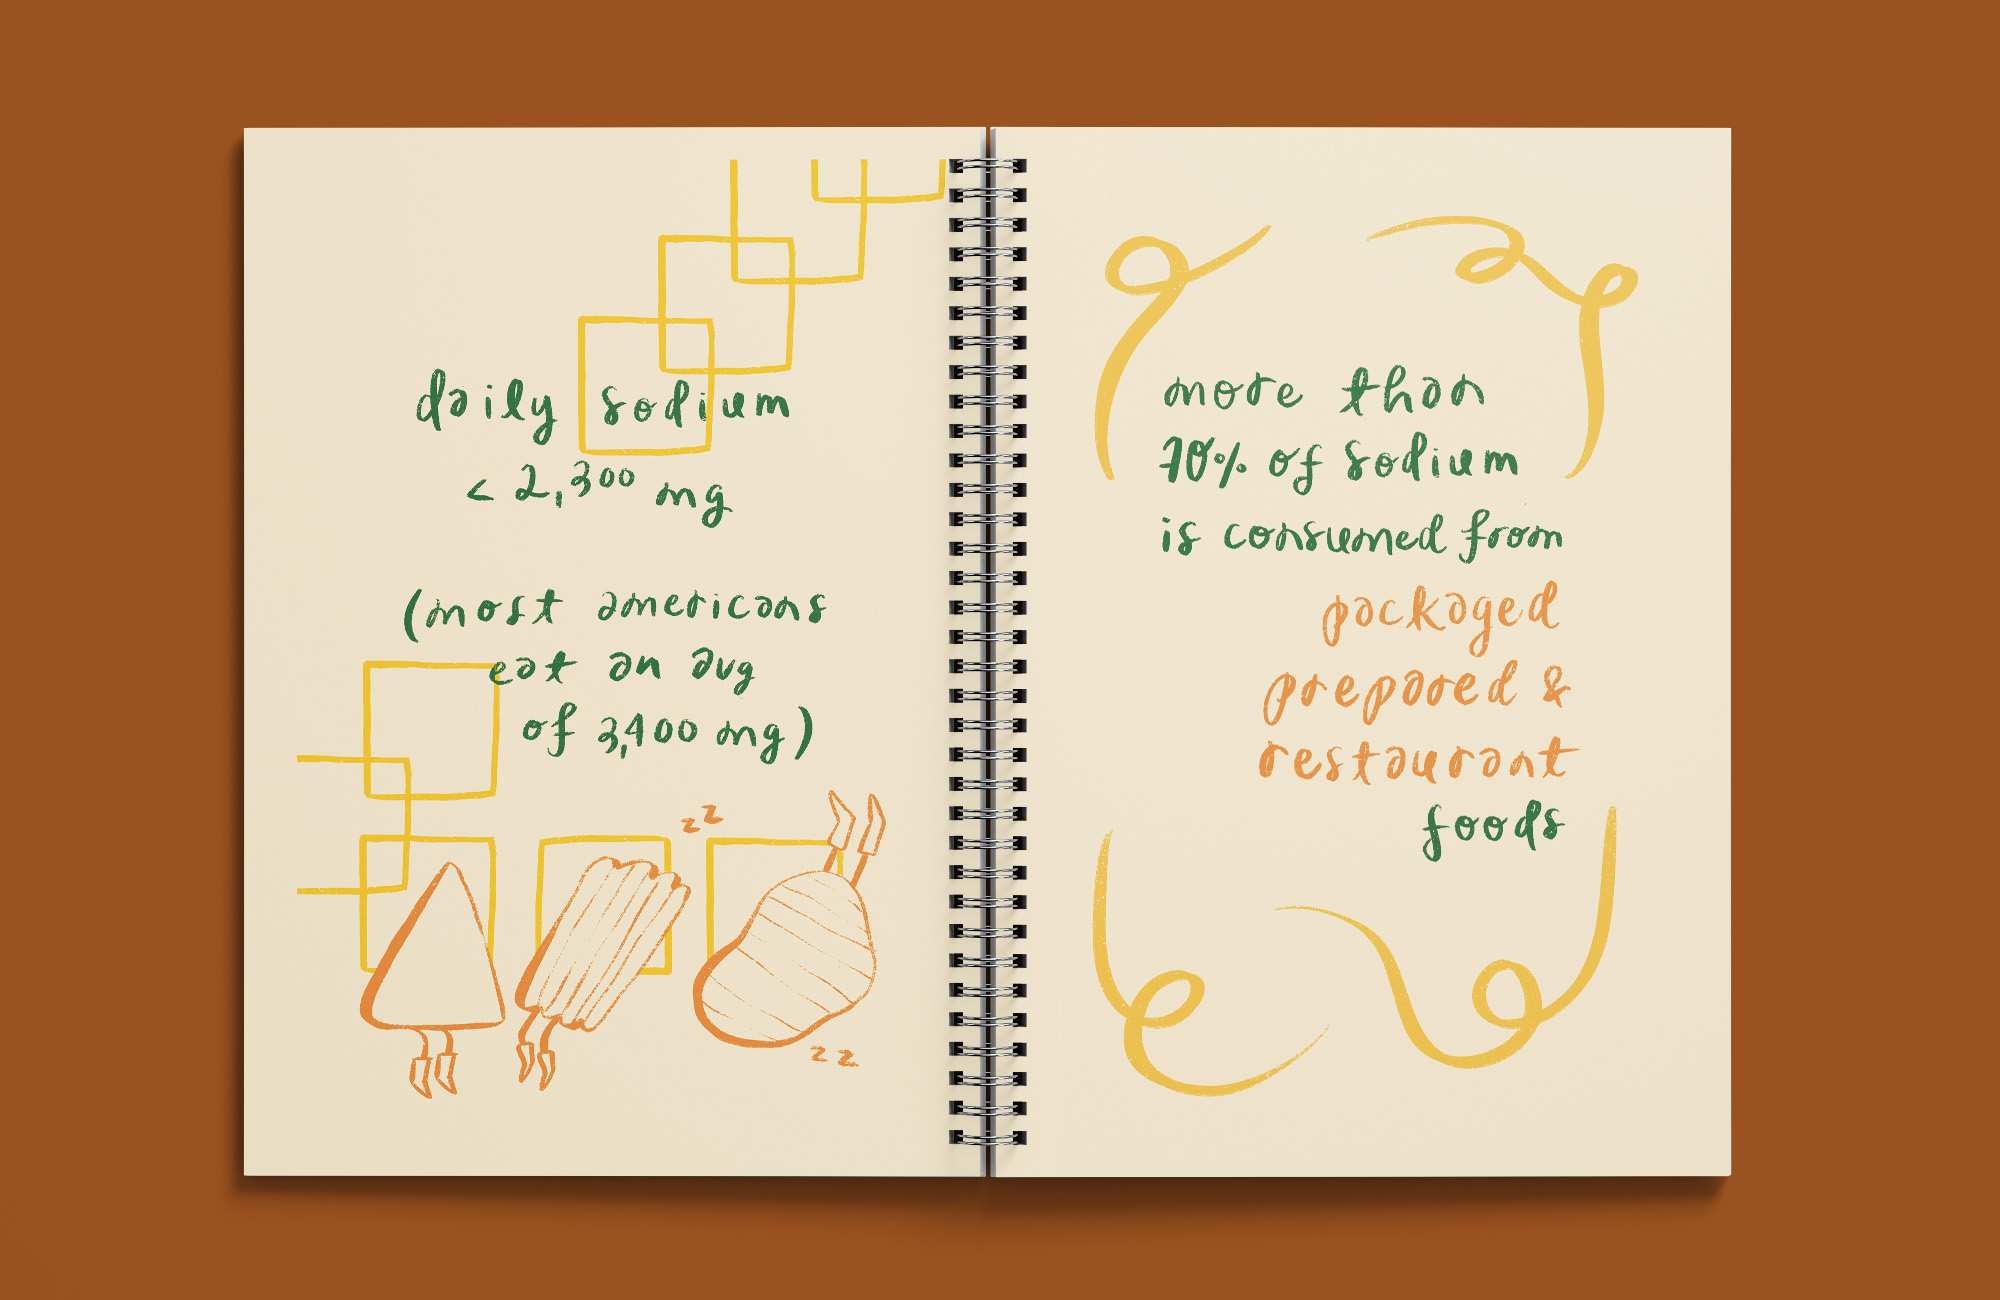 daily sodium
< 2,300 mg
(most americans
eat an avg
of 3,400 mg)
zz
zz
more than
70% of sodium
is consumed from
packaged
prepared &
restaurant
foods